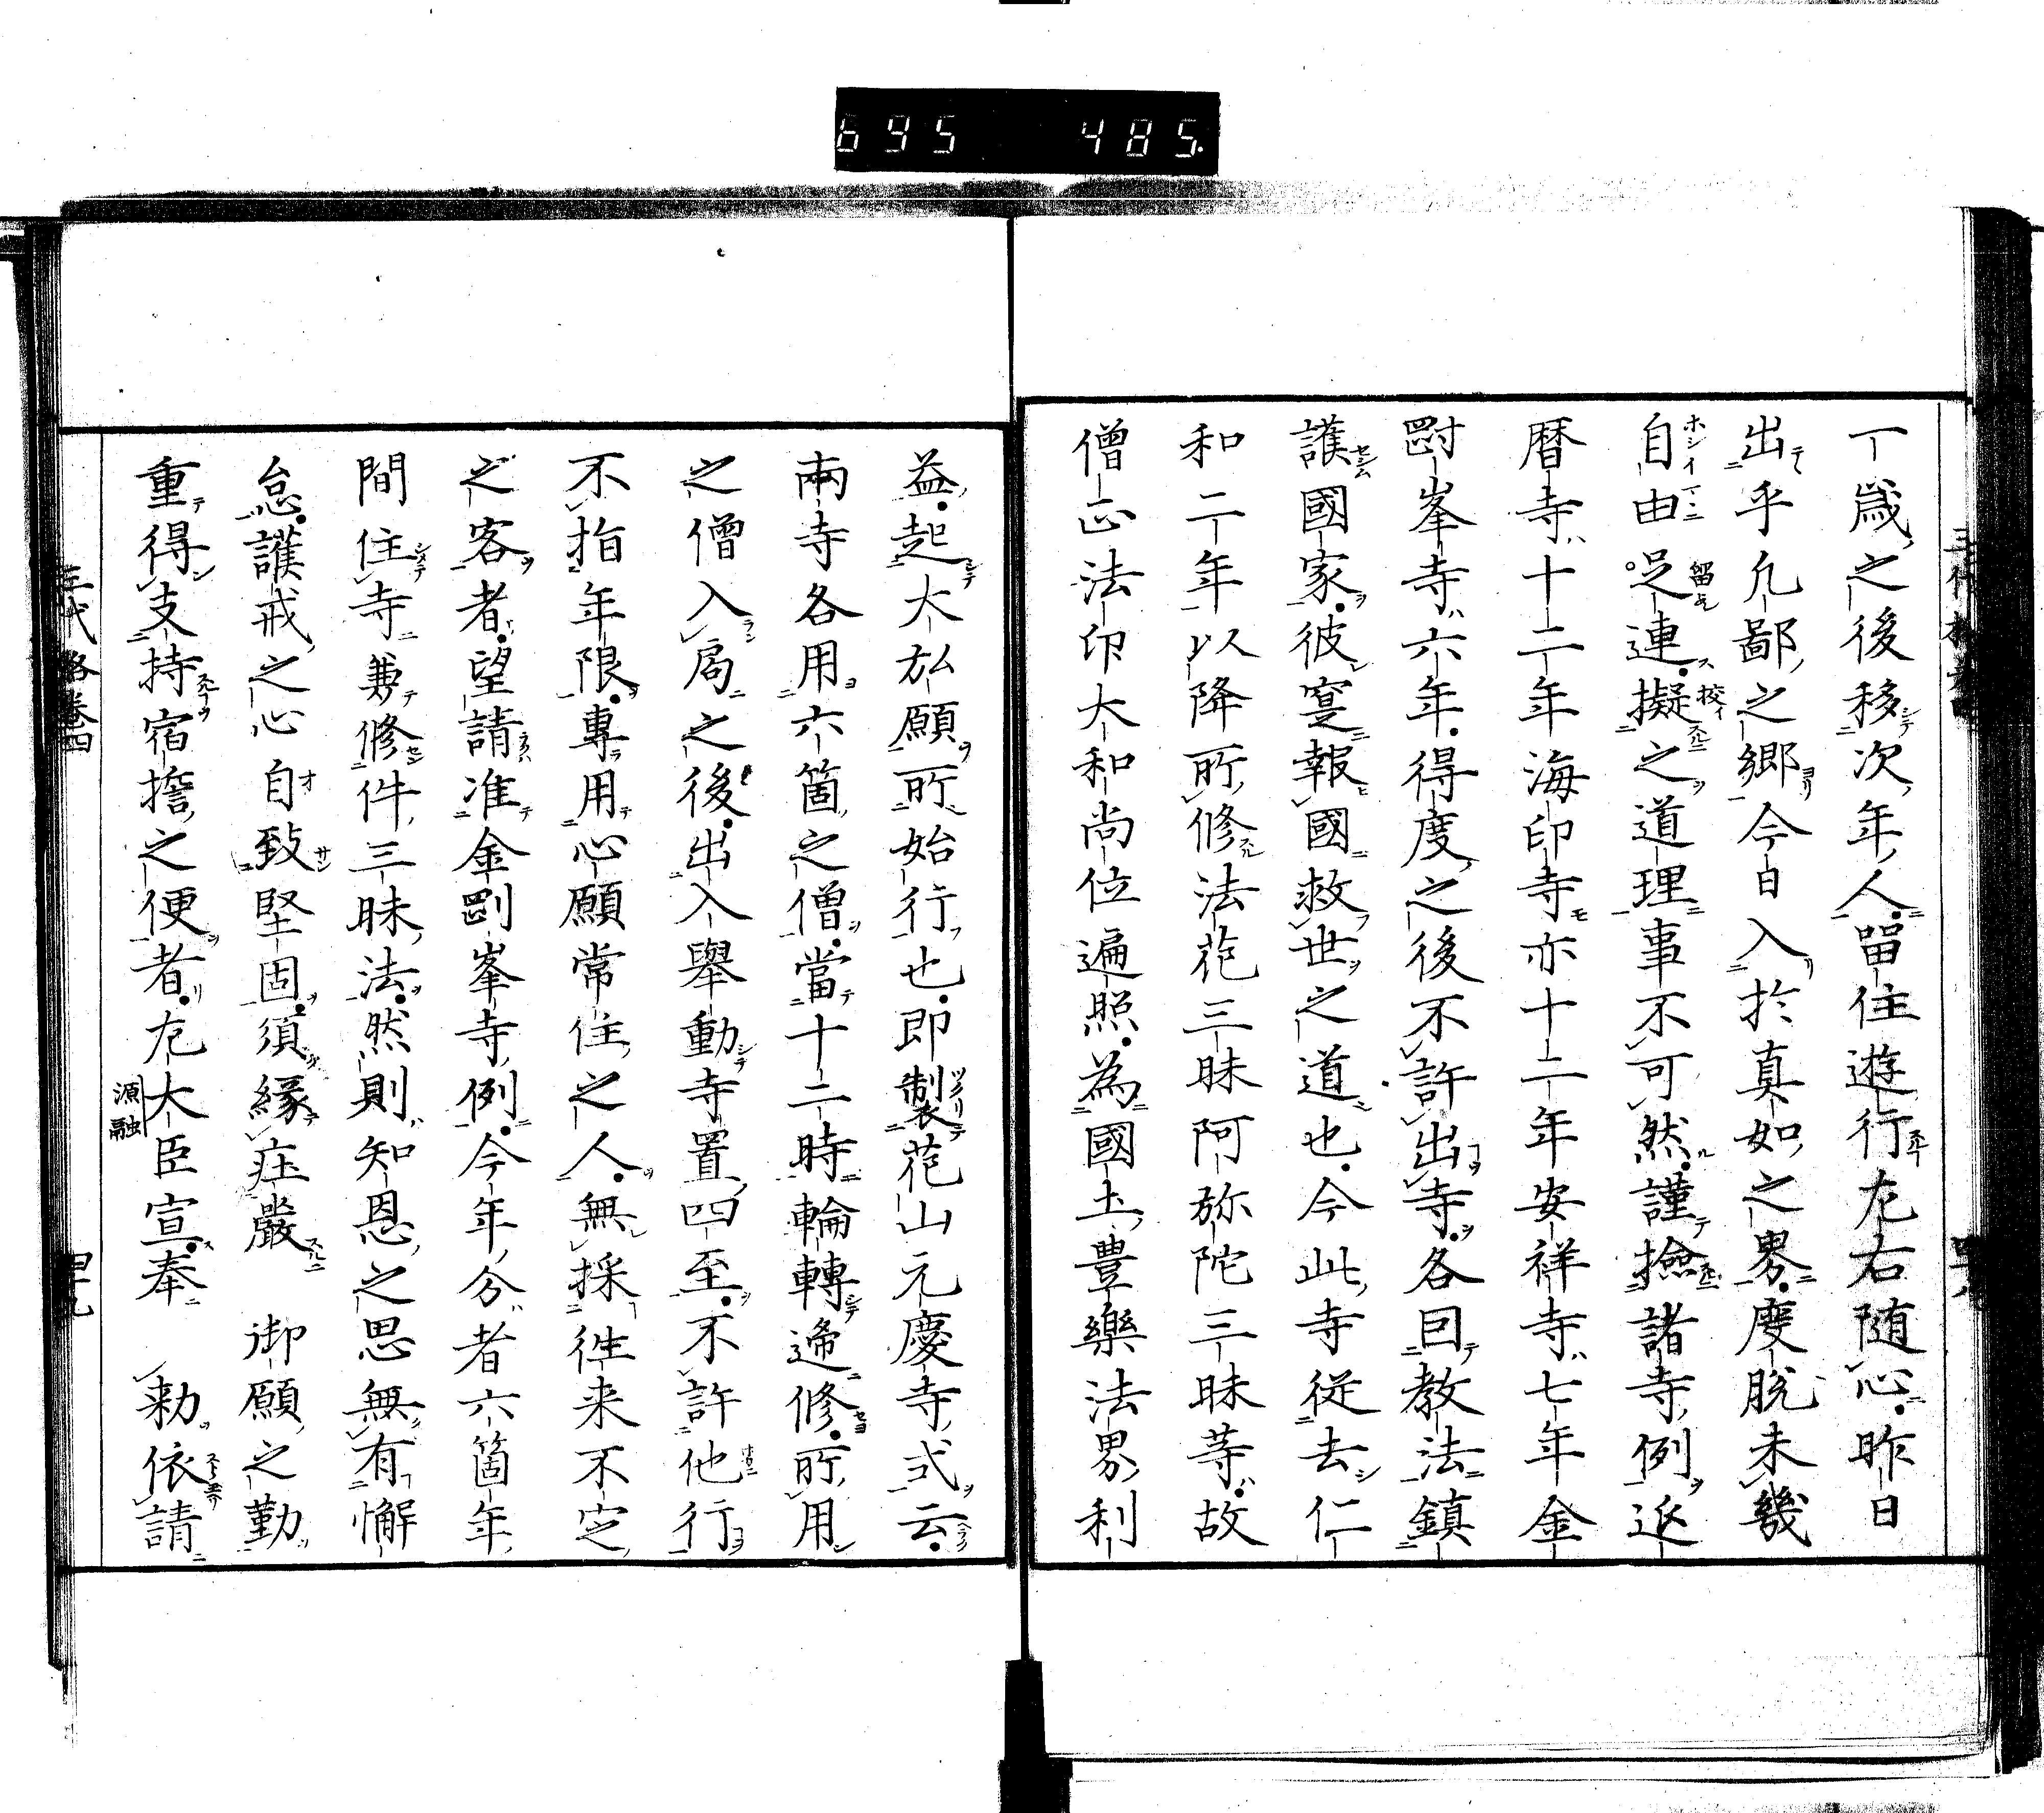 695 485
一歳之後移次年人留住遊行左右随心昨日
出乎凢鄙之郷今日入於真如之界度脱未幾
自由足連擬之道理事不可然謹撿諸寺例返
暦寺十二年海印寺亦十二年安祥寺七年金
剛峯寺六年得度之後不許出寺各因教法鎮
護國家彼寔報國救世之道也今此寺従去仁
和二年以降所修法花三昧阿弥陀三昧等故
僧正法印大和尚位遍照為國土豊樂法界利
益起大弘願所始行也即製花山元慶寺式云
兩寺各用六箇之僧當十二時輪轉遞修所用
之僧入局之後出入舉動寺置四至不許他行
不指年限專用心願常住之人無採徃来不定
之客者望請准金剛峯寺例今年分者六箇年
間住寺兼修件三昧法然則知恩之思無有懈
怠護戒之心自致堅固須縁庄嚴 御願之勤
重得支持宿擔之便者左大臣宣奉 勅依請
源融
三代格巻四
四十九